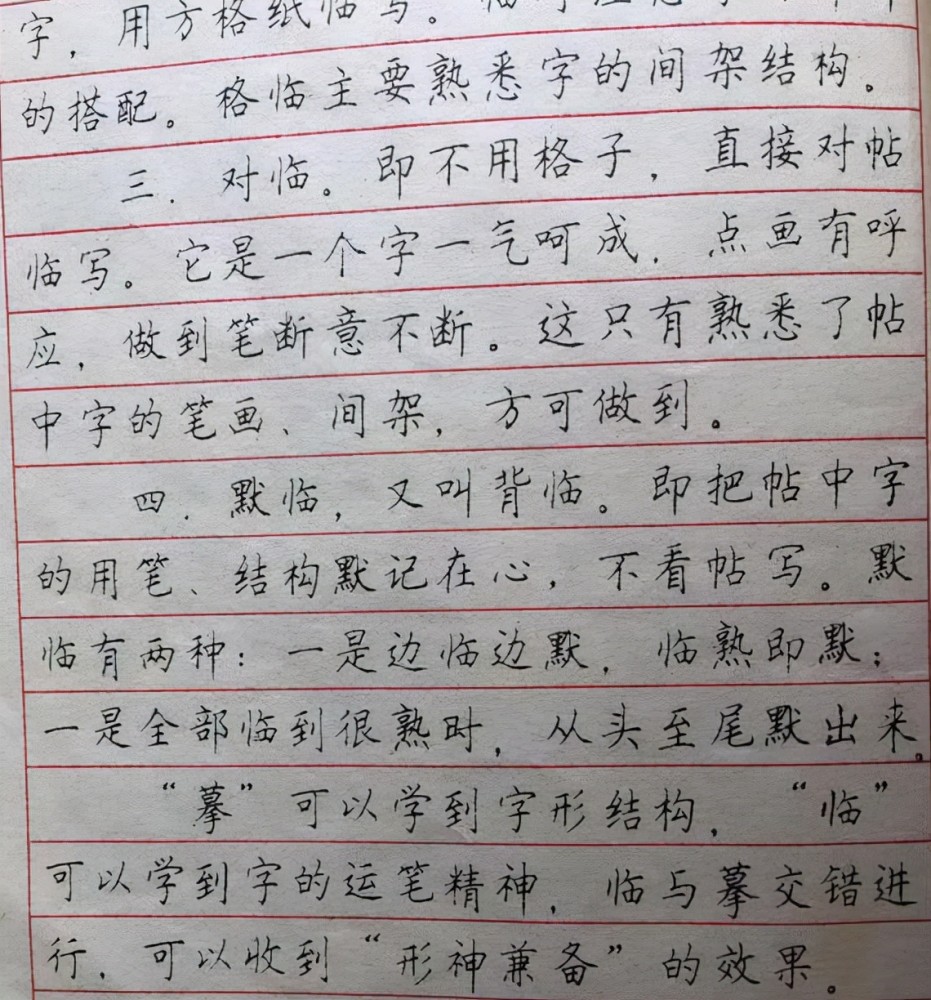 字，用方格纸临写。临
的搭配。格临主要熟悉字的间架结构。
三．对临。即不用格子，直接对帖
临写。它是一个字一气呵成，点画有呼
应，做到笔断意不断。这只有熟悉了帖
中字的笔画、间架，方可做到。
四．默临，又叫背临。即把帖中字
的用笔、结构默记在心，不看帖写。默
临有两种：一是边临边默，临熟即默；
一是全部临到很熟时，从头至尾默出来。
“摹”可以学到字形结构，“临”
可以学到字的运笔精神，临与摹交错进
行，可以收到“形神兼备”的效果。